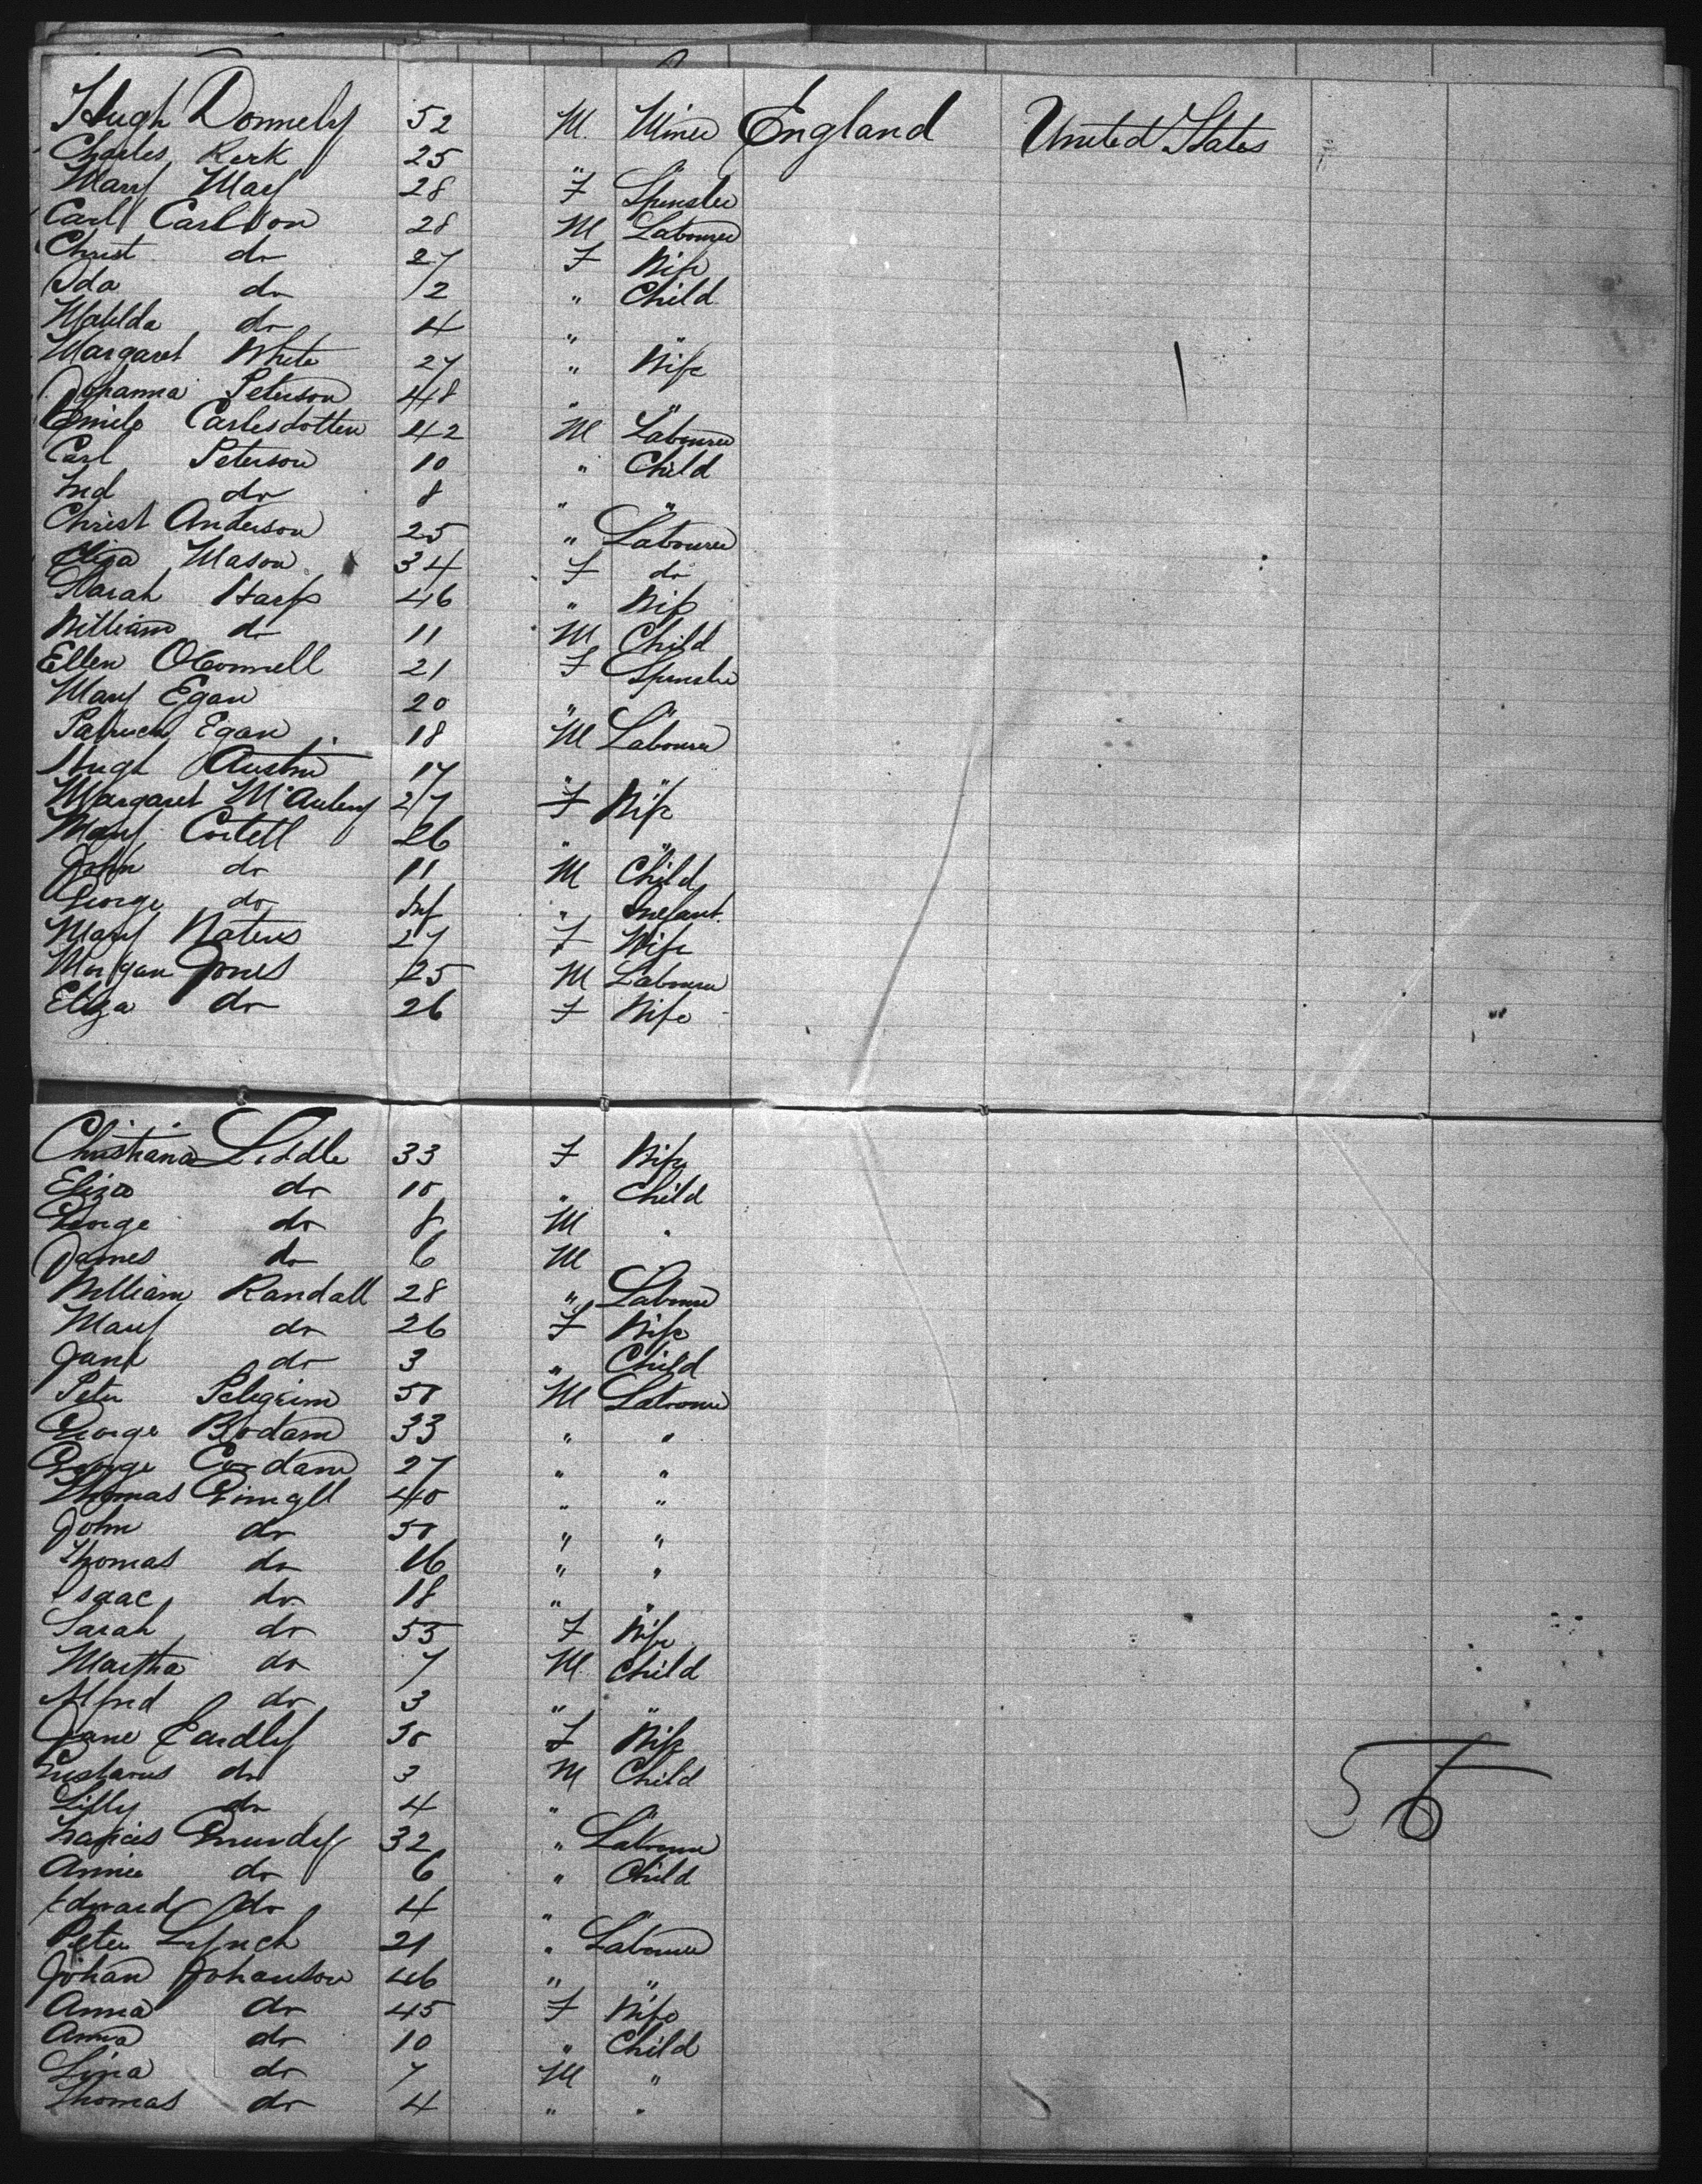 Hugh Donnely 52 M. Miner England United States
Charles Kerk 25 " "
Mary May 28 F Spinster
Carl Carlson 28 M Labourer
Christ do 27 F Wife
Ida do 12 " Child
Matilda do 4 " "
Margaret White 27 " Wife
Johanna Peterson 48 " "
Emile Carlesdotter 42 M Labourer
Carl Peterson 10 " Child
Fred do 8 " "
Christ Anderson 25 " Labourer
Eliza Mason 34 F do
Sarah Harp 46 " Wife
William do 11 M Child
Ellen OConnell 21 F Spinster
Mary Egan 20 " "
Patrick Egan 18 M Labourer
Hugh Austin 17 " "
Margaret McAuley 27 F Wife
Mary Cortell 26 " "
John do 11 M Child
George do Inf " Infant
Mary Waters 27 F Wife
Morgan Jones 25 M Labourer
Eliza do 26 F Wife
Christiana Liddle 33 F Wife
Eliza do 10 " Child
George do 8 M "
James do 6 M
William Randall 28 " Labourer
Mary do 26 F Wife
Jane do 3 " Child
Peter Pelegrim 50 M Labourer
George Bodam 33 " "
George Cordam 27 " "
Thomas 40 " "
John do 50 " "
Thomas do 16 " "
Isaac do 18 " "
Sarah do 53 F Wife
Martha do 7 M Child
Alfred do 3 " "
Jane Eardley 30 F Wife
Gustavus do 3 M Child
Lilly do 4 " "
Francis Grundy 32 " Labourer
Annie do 6 " Child
Edward do 4 " "
Peter Lynch 21 " Labourer
Johan Johanson 46 " "
Anna do 45 F Wife
Anna do 10 " Child
Lina do 7 M "
Thomas do 4 " "
56